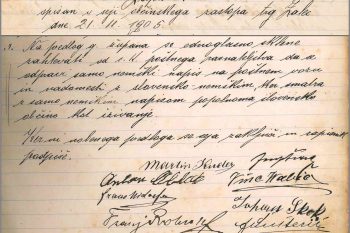 spisan v seji občinskega zastopa trg Žalc
dne 21. 11. 1905
1. Na predlog g. župana se ednoglasno sklene
zahtevati od c. k. poštnega ravnateljstva da se
odpravi samo nemški napis na poštnem vozu
in nadomesti z slovensko-nemškim ker smatra
z samo nemškim napisom popolnoma slovensko
občino kot izzivanje.
Ker ni nobenega predloga se seja zaključi in zapisnik
podpiše.
Martin
Anton
Vinc
Franc
Skok
Franj